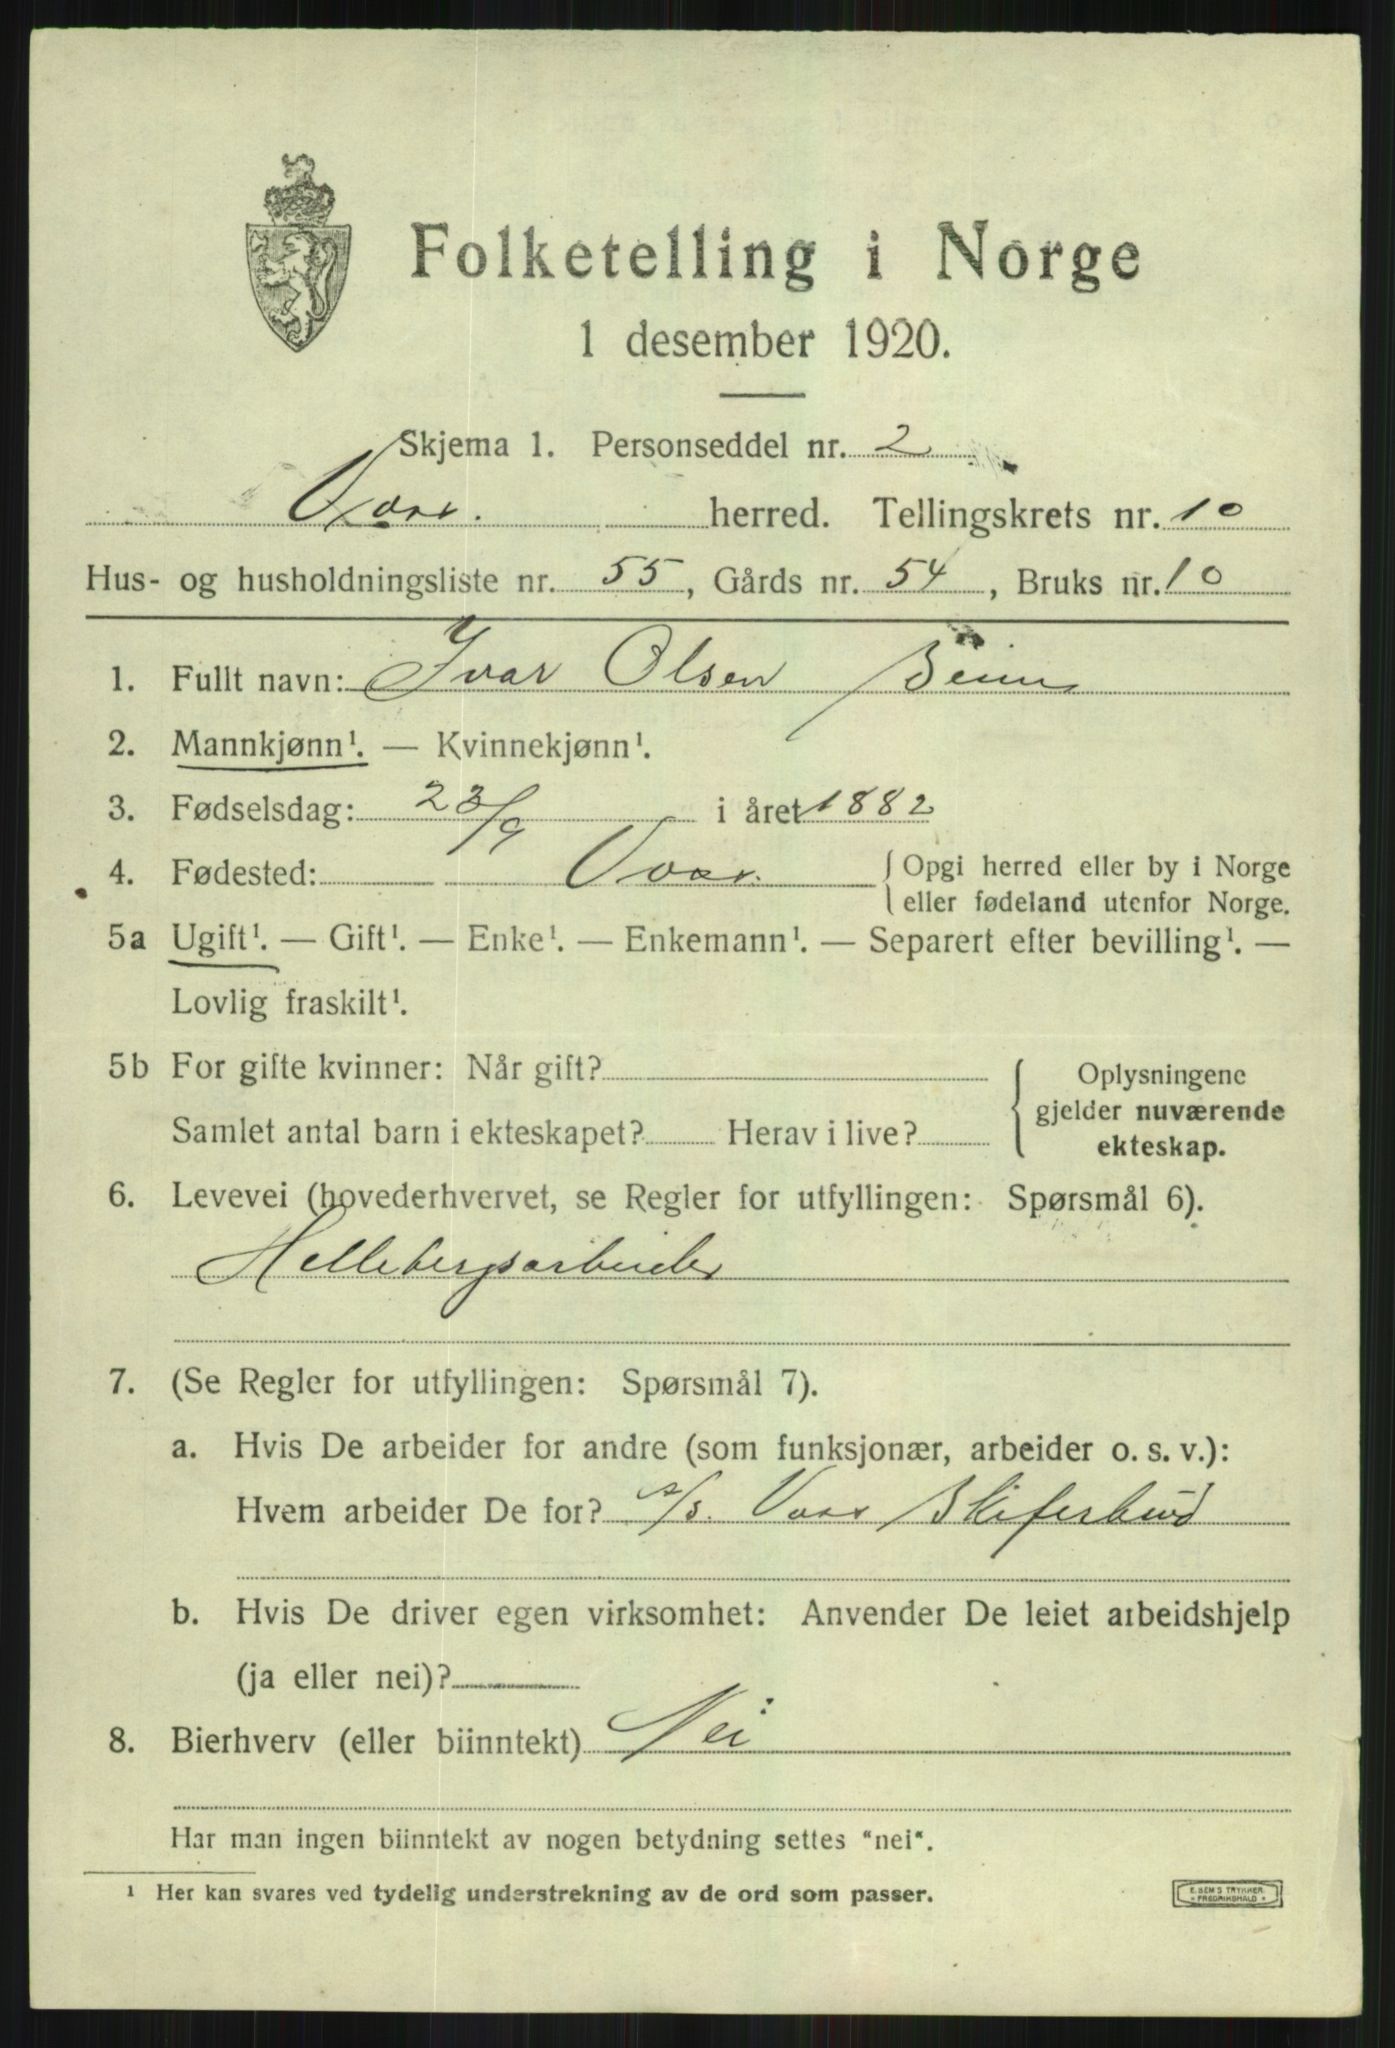 Folketelling i Norge
1 desember 1920.
Skjema 1. Personseddel nr. 2
Voss. herred. Tellingskrets nr. 10
Hus- og husholdningsliste nr. 55, Gårds nr. 54, Bruks nr. 10
1. Fullt navn: Ivar Olsen
2. Mannkjønn¹. — Kvinnekjønn¹.
3. Fødselsdag: 23/9 i året 1882
4. Fødested: Voss. { Opgi herred eller by i Norge
eller fødeland utenfor Norge.
5a Ugift¹. — Gift¹. — Enke¹. — Enkemann¹. — Separert efter bevilling¹. —
Lovlig fraskilt¹.
5b For gifte kvinner: Når gift?
Samlet antal barn i ekteskapet? Herav i live?
Oplysningene
gjelder nuværende
ekteskap.
6. Levevei (hovederhvervet, se Regler for utfyllingen: Spørsmål 6).
Hellebergsarbeider
7. (Se Regler for utfyllingen: Spørsmål 7).
a. Hvis De arbeider for andre (som funksjonær, arbeider o. s. v.):
Hvem arbeider De for? A/S. Voss Skiferbrud
b. Hvis De driver egen virksomhet: Anvender De leiet arbeidshjelp
(ja eller nei)?
8. Bierhverv (eller biinntekt) Nei
Har man ingen biinntekt av nogen betydning settes "nei".
¹ Her kan svares ved tydelig understrekning av de ord som passer.
E. SEM'S TRYKKERI
FREDRIKSHALD